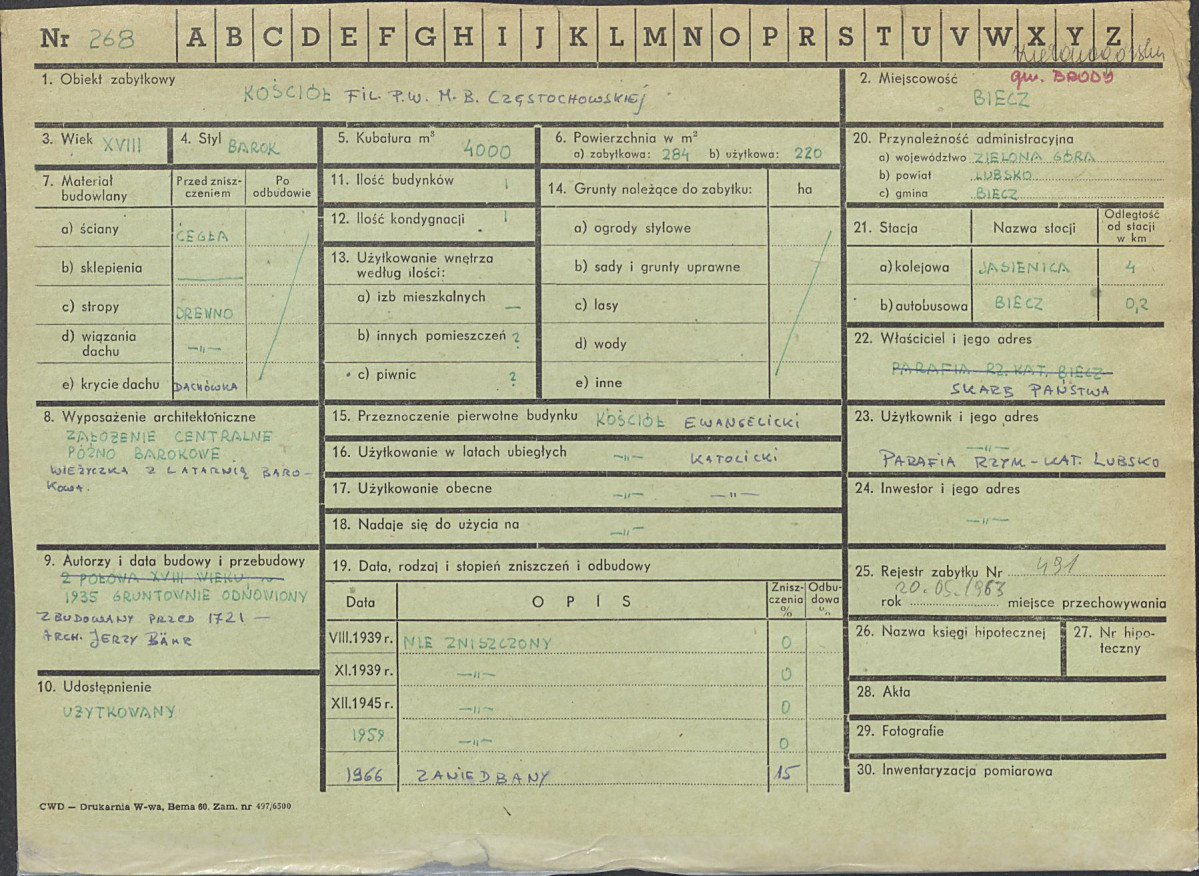 Nr 268 A B C D E F G H I J K L M N O P R S T U V W X Y Z
Zielonogórskie
1. Obiekt zabytkowy
KOŚCIÓŁ FIL. P.W. M. B. CZĘSTOCHOWSKIEJ
2. Miejscowość gm. BRODY
BIECZ
3. Wiek XVIII
4. Styl BAROK
5. Kubatura m³ 4000
6. Powierzchnia w m²
a) zabytkowa: 284 b) użytkowa: 220
20. Przynależność administracyjna
a) województwo ZIELONA GÓRA
b) powiat LUBSKO
c) gmina BIECZ
7. Materiał budowlany
Przed zniszczeniem
Po odbudowie
a) ściany CEGŁA
b) sklepienia —
c) stropy DREWNO
d) wiązania dachu —„—
e) krycie dachu DACHÓWKA
11. Ilość budynków 1
12. Ilość kondygnacji 1
13. Użytkowanie wnętrza
według ilości:
a) izb mieszkalnych —
b) innych pomieszczeń ?
c) piwnic ?
14. Grunty należące do zabytku: ha
a) ogrody stylowe
b) sady i grunty uprawne
c) lasy
d) wody
e) inne
21. Stacja Nazwa stacji Odległość od stacji w km
a) kolejowa JASIENICA 4
b) autobusowa BIECZ 0,2
22. Właściciel i jego adres
PARAFIA RZ. KAT. BIECZ
SKARB PAŃSTWA
8. Wyposażenie architektoniczne
ZAŁOŻENIE CENTRALNE
PÓŹNO BAROKOWE.
WIEŻYCZKA Z LATARNIĄ BARO-
KOWA.
15. Przeznoczenie pierwotne budynku KOŚCIÓŁ EWANGELICKI
16. Użytkowanie w latach ubiegłych —„— KATOLICKI
17. Użytkowanie obecne —„— —„—
18. Nadaje się do użycia na —„—
23. Użytkownik i jego adres
—„—
PARAFIA RZYM-KAT. LUBSKO
24. Inwestor i jego adres
—„—
9. Autorzy i data budowy i przebudowy
2 POŁOWA XVIII WIEKU, w
1935 GRUNTOWNIE ODNOWIONY
ZBUDOWANY PRZED 1721 —
ARCH. JERZY BÄHR
10. Udostępnienie
UŻYTKOWANY
19. Data, rodzaj i stopień zniszczeń i odbudowy
Data OPIS Zniszczenia % Odbudowa %
VIII.1939 r. NIE ZNISZCZONY 0
XI.1939 r. —„— 0
XII.1945 r. —„— 0
1959 —„— 0
1966 ZANIEDBANY 15
25. Rejestr zabytku Nr 491
20.05.1963
rok miejsce przechowywania
26. Nazwa księgi hipotecznej
27. Nr hipo-
teczny
28. Akta
29. Fotografie
30. Inwentaryzacja pomiarowa
CWD — Drukarnia W-wa, Bema 60. Zam. nr 497/6500